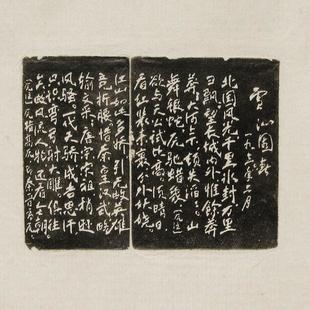 雪 沁园春
北国风光千里冰封万里
雪飘望长城内外惟余莽
莽大河上下顿失滔滔山
舞银蛇原驰蜡象
欲与天公试比高须晴日
看红装素裹分外妖娆
江山如此多娇引无数英雄
竞折腰惜秦皇汉武略
输文采唐宗宋祖稍逊
风骚一代天骄成吉思汗
只识弯弓射大雕俱往
矣数风流人物还看今朝